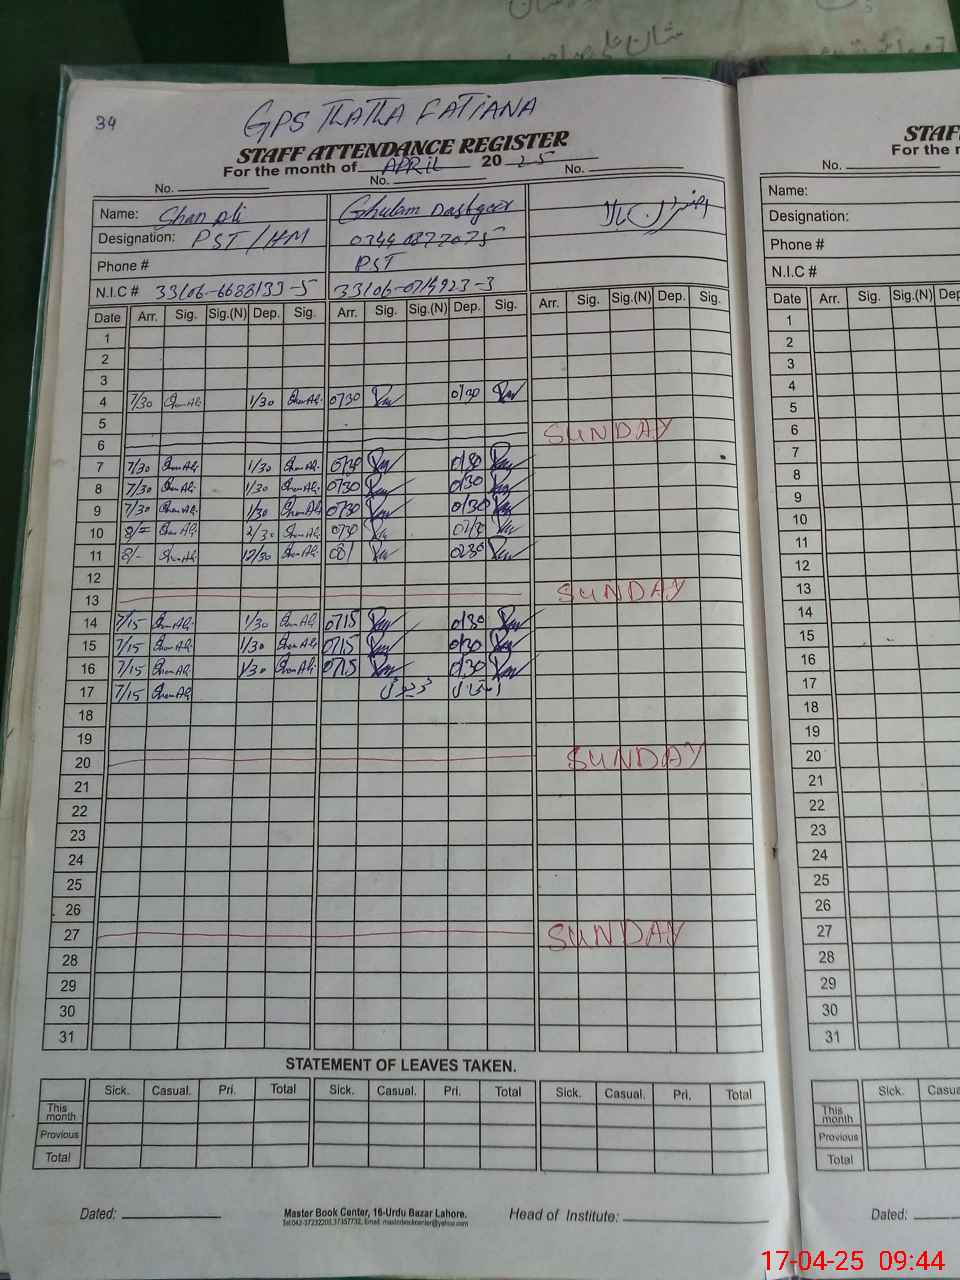 34
GPS THATHA FATIANA
STAFF ATTENDANCE REGISTER
For the month of APRIL 2025
No. No. No.
Name: Shan Ali Ghulam Dastgeer
Designation: PST/HM 0344 0877075
Phone # PST
N.I.C # 33106-6688133-5 33106-0719923-3
Date Arr. Sig. Sig.(N) Dep. Sig. Arr. Sig. Sig.(N) Dep. Sig. Arr. Sig. Sig.(N) Dep. Sig.
1
2
3
4 7/30 Shan Ali 1/30 Shan Ali 0730 0130
5
6 SUNDAY
7 7/30 Shan Ali 1/30 Shan Ali 0730 0130
8 7/30 Shan Ali 1/30 Shan Ali 0730 0130
9 7/30 Shan Ali 1/30 Shan Ali 0730 0130
10 8/= Shan Ali 2/30 Shan Ali 0730
11 8/- Shan Ali 12/30 Shan Ali 08/
12
13 SUNDAY
14 7/15 Shan Ali 1/30 Shan Ali 0715 0130
15 7/15 Shan Ali 1/30 Shan Ali 0715 0130
16 7/15 Shan Ali 1/30 Shan Ali 0715 0130
17 7/15 Shan Ali
18
19
20 SUNDAY
21
22
23
24
25
26
27 SUNDAY
28
29
30
31
STATEMENT OF LEAVES TAKEN.
Sick. Casual. Pri. Total Sick. Casual. Pri. Total Sick. Casual. Pri. Total
This month
Previous
Total
Dated: Master Book Center, 16-Urdu Bazar Lahore. Head of Institute:
STAF
For the m
No.
Name:
Designation:
Phone #
N.I.C #
Date Arr. Sig. Sig.(N) Dep
1
2
3
4
5
6
7
8
9
10
11
12
13
14
15
16
17
18
19
20
21
22
23
24
25
26
27
28
29
30
31
Sick. Casua
This month
Previous
Total
Dated:
17-04-25 09:44